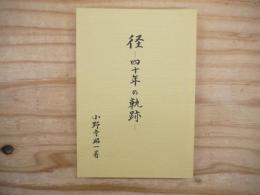 径
―四十年の軌跡―
小野寺昭一著